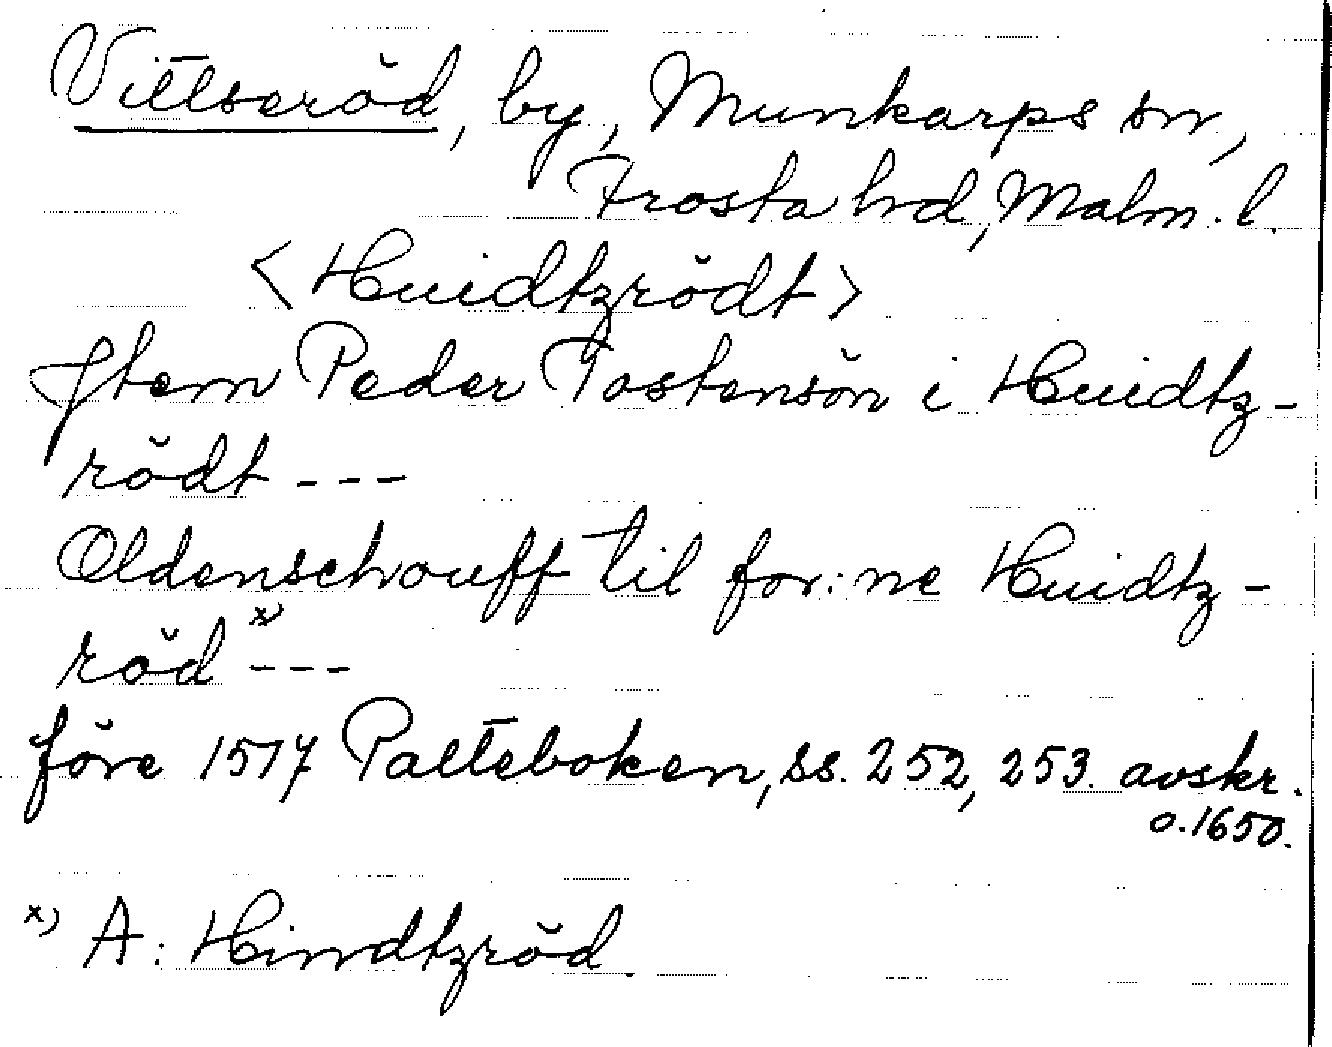 Vittseröd, by, Munkarps sn,
Frosta hd, Malm. l.
<Huidtzrödt>
Jtem Peder Tostensön i Huidtz-
rödt ---
Oldenschouff til for:ne Huidtz-
röd x) ---
före 1517 Palteboken, ss. 252, 253. avskr.
o. 1650.
x) A: Hindtzröd.